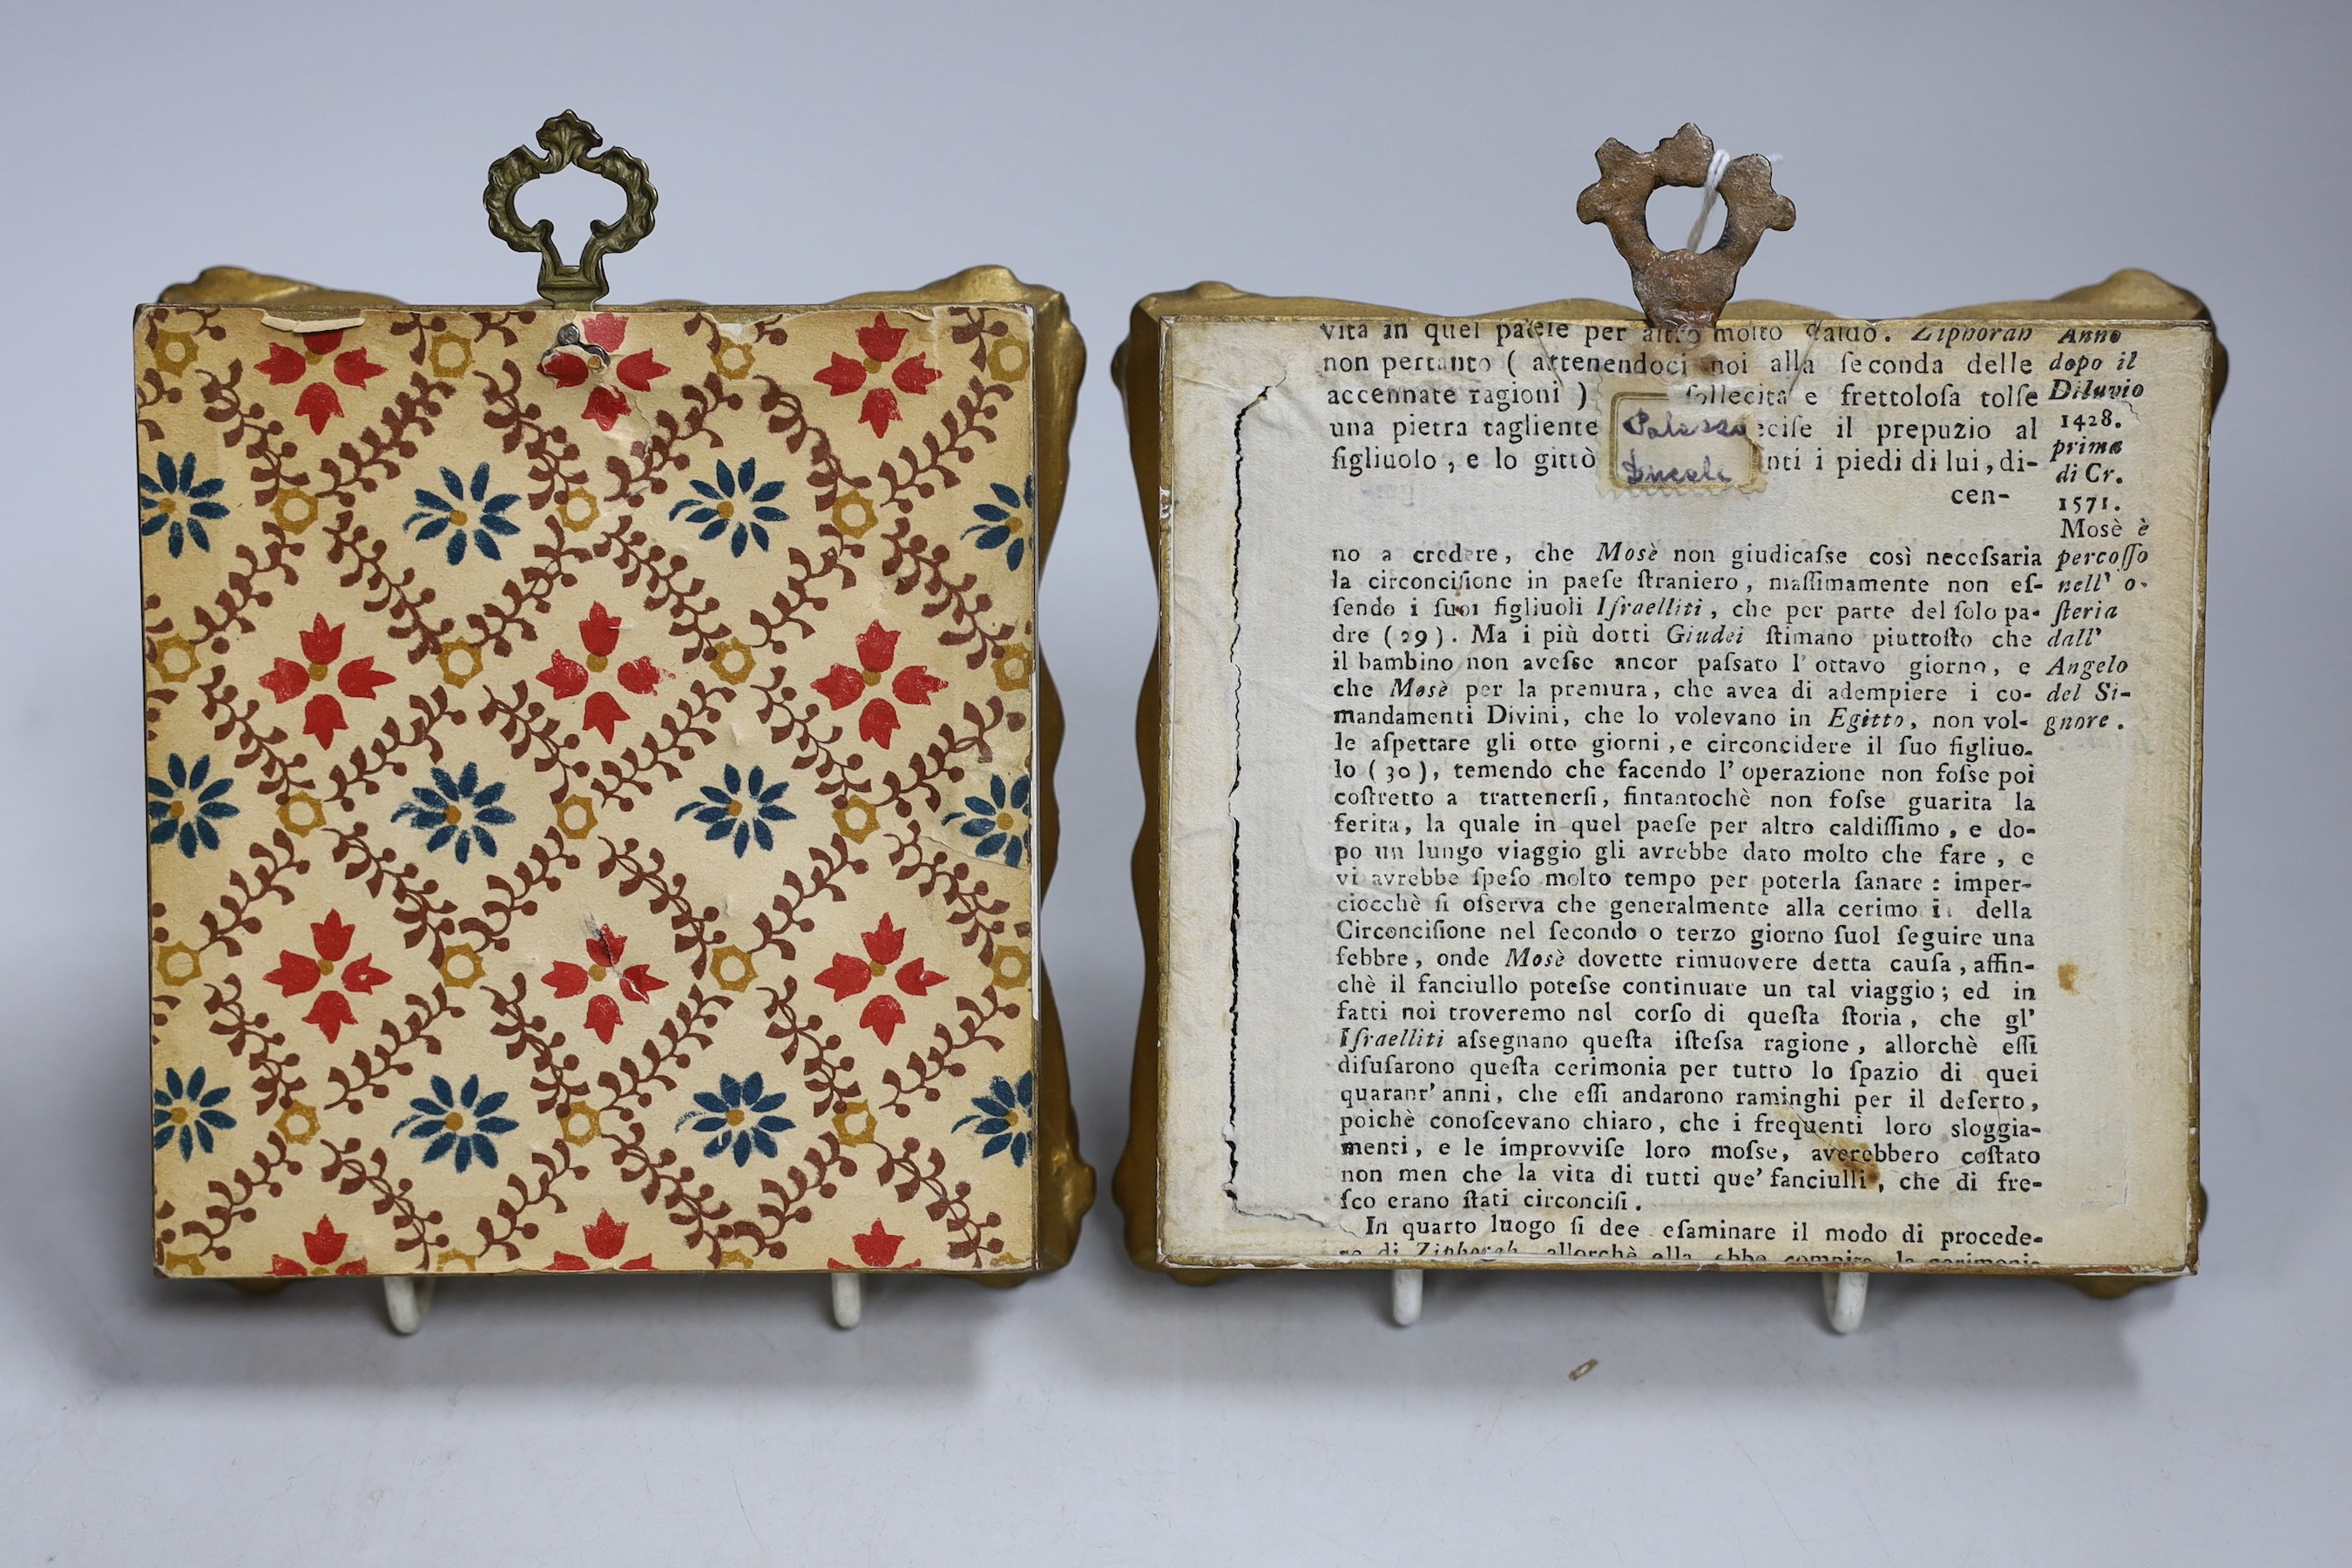 vita in quel paeſe per altro molto caldo. Ziphorah
non pertanto ( attenendoci noi alla ſeconda delle
accennate ragioni ) ſollecita e frettoloſa tolſe
una pietra tagliente eciſe il prepuzio al
figliuolo, e lo gittò nti i piedi di lui, di-
cen-
Palazzo
Ducale
Anno
dopo il
Diluvio
1428.
prima
di Cr.
1571.
Mosè è
percoſſo
nell' o-
ſteria
dall'
Angelo
del Si-
gnore.
no a credere, che Mosè non giudicaſse così neceſsaria
la circonciſione in paeſe ſtraniero, maſſimamente non eſ-
ſendo i ſuoi figliuoli Iſraelliti, che per parte del ſolo pa-
dre (29). Ma i più dotti Giudei ſtimano piuttoſto che
il bambino non aveſse ancor paſsato l'ottavo giorno, e
che Mosè per la premura, che avea di adempiere i co-
mandamenti Divini, che lo volevano in Egitto, non vol-
le aſpettare gli otto giorni, e circoncidere il ſuo figliuo-
lo (30), temendo che facendo l'operazione non foſse poi
coſtretto a trattenerſi, fintantochè non foſse guarita la
ferita, la quale in quel paeſe per altro caldiſſimo, e do-
po un lungo viaggio gli avrebbe dato molto che fare, e
vi avrebbe ſpeſo molto tempo per poterla ſanare: imper-
ciocchè ſi oſserva che generalmente alla cerimo i della
Circonciſione nel ſecondo o terzo giorno ſuol ſeguire una
febbre, onde Mosè dovette rimuovere detta cauſa, affin-
chè il fanciullo poteſse continuare un tal viaggio; ed in
fatti noi troveremo nel corſo di queſta ſtoria, che gl'
Iſraelliti aſsegnano queſta iſteſsa ragione, allorchè eſſi
diſuſarono queſta cerimonia per tutto lo ſpazio di quei
quarant'anni, che eſſi andarono raminghi per il deſerto,
poichè conoſcevano chiaro, che i frequenti loro sloggia-
menti, e le improvviſe loro moſse, averebbero coſtato
non men che la vita di tutti que' fanciulli, che di fre-
ſco erano ſtati circonciſi.
In quarto luogo ſi dee eſaminare il modo di procede-
re di Ziphorah, allorchè ella ebbe compita la cerimonia